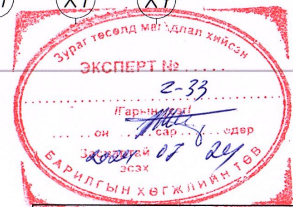 X1
X1
Зураг төсөлд магадлал хийсэн
ЭКСПЕРТ №
2-33
/Гарын үсэг/
он сар өдөр
07 24
эсэх
БАРИЛГЫН ХӨГЖЛИЙН ТӨВ